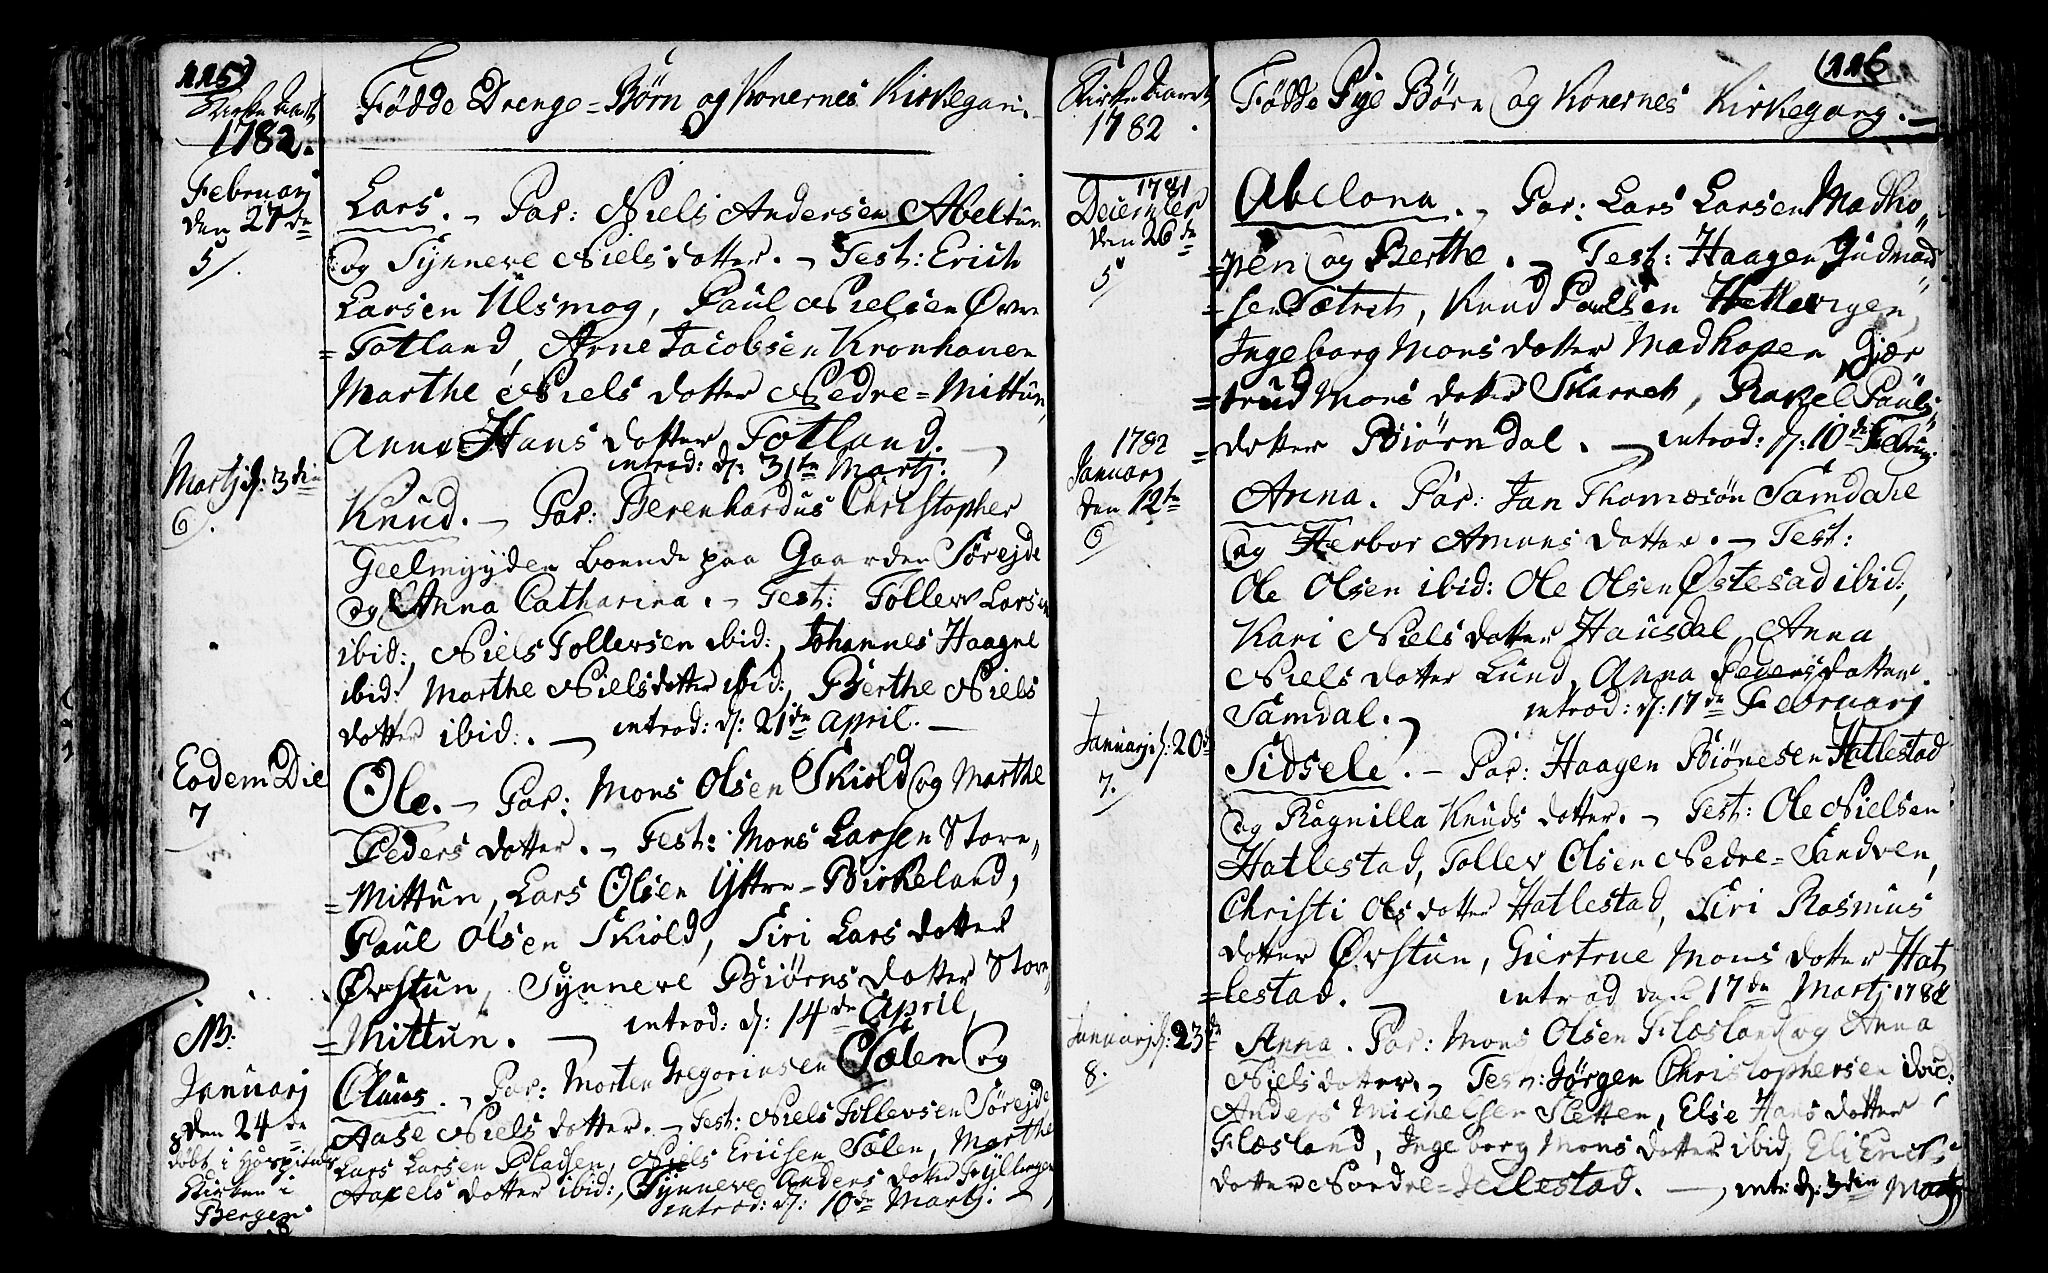 225)
Kirke Aaret
1782.
Födde Drenge=Börn og Konernes Kirkegan.
Februarj
den 27de
5/.
Lars. Par: Niels Andersen Abeltun
og Synneve Niels dotter. Test: Erich
Larsen Ulsmog, Paul Nielsen Övre
=Totland, Arne Jacobsen Kronhauen
Marthe Niels dotter Nedre=Mittun,
Anne Hans dotter Totland.
introd: d: 31te Martj.
Martj d: 3die
6.
Knud. Par: Berenhardus Christopher
Geelmyyden boende paa Gaarden Sörejde
og Anna Catharina. Test: Tollew Larsen
ibid:, Niels Tollevsen ibid:, Johannes Haagne
ibid: Marthe Nielsdotter ibid:, Berthe Niels
dotter ibid:. introd: d: 21de April.
Eodem Die
7
Ole. Par: Mons Olsen Skiold og Marthe
Peders dotter. Test: Mons Larsen Store„
=Mittun, Lars Olsen Yttre-Birkeland,
Paul Olsen Skiold, Siri Lars dotter
Örstun, Synneve Biörns dotter Store„
=Mittun. introd: d: 14de April,
NB:
Januarj
den 24de
döbt i Hospitals
Kirken i
Bergen
8
Claus. Par: Morten Gregoriusen Sælen og
Aase Niels dotter. Test: Niels Tollevsen Sörejde
Lars Larsen Pladsen, Niels Ericsen Sælen, Marthe
Axels dotter ibid:, Synneve Anders dotter Fyllingen
introd: d: 10de Martj:
226
Kirke Aaret
1782.
Födde Pige Börn og Konernes Kirkegang.
1781
December
den 26de
5/
Abelona. Par: Lars Larsen Madho„
=pen og Berthe. Test: Haagen Gudmund
=sen Sætret, Knud Paulsen Hetlevigen
Ingeborg Mons dotter Madhopen, Giær
=trud Mons dotter Skarret, Rakel Pauls„
=dotter Biörndal. introd: d: 10de Februarj.
1782
Januarj
den 12te
6/
Anna. Par: Jan Thomæsön Samdahl
og Herbor Amuns dotter. Test:
Ole Olsen ibid: Ole Olsen Östesad ibid:,
Kari Niels dotter Hausdal, Anna
Niels dotter Lund, Anna Pedersdotter
Samdal. introd: d: 17de Februarj
Januarj d: 20de
7.
Sidsele. Par: Haagen Biönesen Hatlestad
og Ragnilla Knuds dotter. Test: Ole Nielsen
Hatlestad, Tollev Olsen Nedre=Sandven,
Christi Ols dotter Hatlestad, Siri Rasmus
dotter Örstun, Giertrue Mons dotter Hat
=lestad. introd d: 17de Martj 1782
Januarj d: 23de
8.
Anna. Par: Mons Olsen Flæsland og Anna
Niels dotter. Test: Jörgen Christophersen ibid:
Anders Michelsen Sletten, Else Hans dotter
Flæsland, Ingeborg Mons dotter ibid, Eli Erichs
dotter Söndre=Hillestad. intr: d: 3die Martj